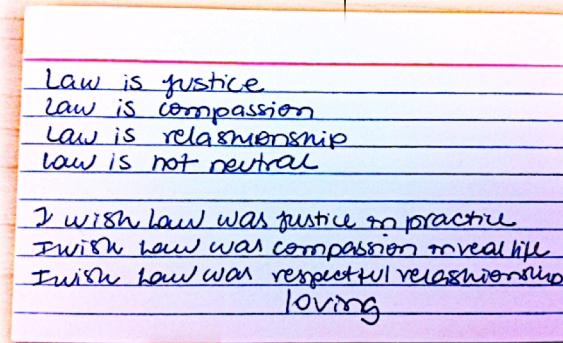 Law is justice
Law is compassion
Law is relashionship
Law is not neutral
I wish Law was justice in practice
I wish Law was compassion in real life
I wish Law was respectful relashionship
loving